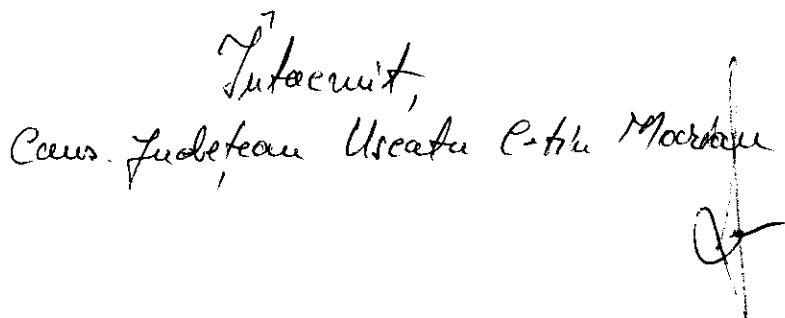 Întocmit,
Cons. Județean Uscatu C-tin Marian